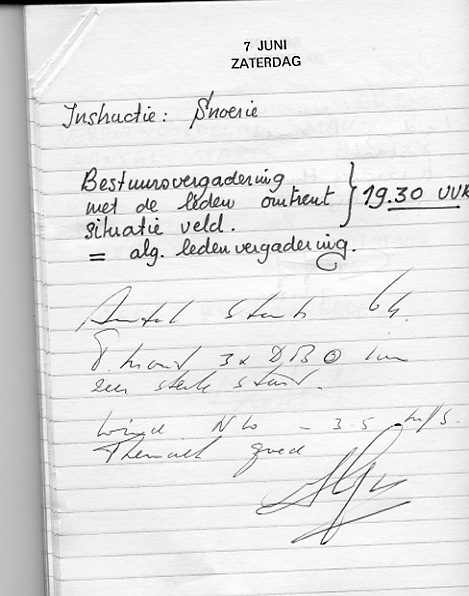 7 JUNI
ZATERDAG
Instructie: Snoerie
Bestuursvergadering
met de leden omtrent } 19.30 UUR
situatie veld.
= alg. ledenvergadering.
Aantal starts 64.
3x DBO in
zeer sterke stand.
Wind NW - 3.5 m/s.
Thermiek goed